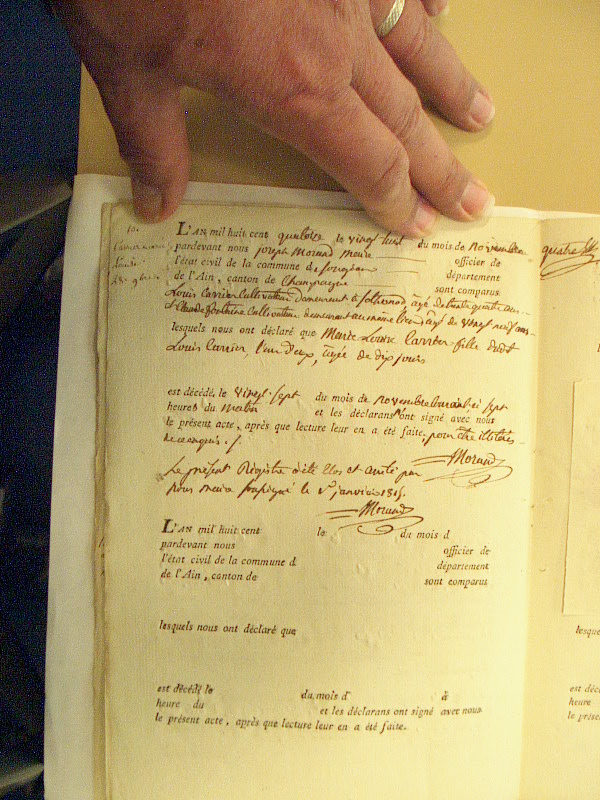 L'AN mil huit cent quatorze le vingt huit du mois de novembre
pardevant nous joseph Morand maire officier de
l'état civil de la commune de songieu département
de l'Ain, canton de Champagne sont comparus
Louis Carrier Cultivateur demeurant à sothonod, agé de trente quatre ans
Claude fontaine Cultivateur demeurant au même lieu agé de vingt neuf ans
lesquels nous ont déclaré que Marie Louise Carrier fille dudit
Louis Carrier, l'un d'eux, agée de dix jours
est décédé, le vingt sept du mois de novembre à sept
heures du matin et les déclarans ont signé avec nous
le présent acte, après que lecture leur en a été faite, pour être illitérés
de ce enquis
Morand
Le présent Registre a été Clos et arrêté par
Nous maire soussigné le 1er janvier 1815.
Morand
L'AN mil huit cent le du mois d
pardevant nous officier de
l'état civil de la commune d département
de l'Ain, canton de sont comparus
lesquels nous ont déclaré que
est décédé le du mois d à
heure du et les déclarans ont signé avec nous
le présent acte, après que lecture leur en a été faite.
quatre
lesque
est déc
heure
le prése